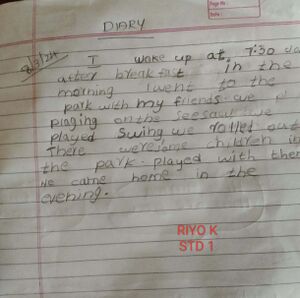 Page No.
Date:
DIARY
8/3/24
I wake up at 7:30
after breakfast in the
morning I went to the
park with my friends we
plaging on the seesaw we
played Swing we rolled out
There were some children in
the park. played with them
we came home in the
evening.
RIYO K
STD 1